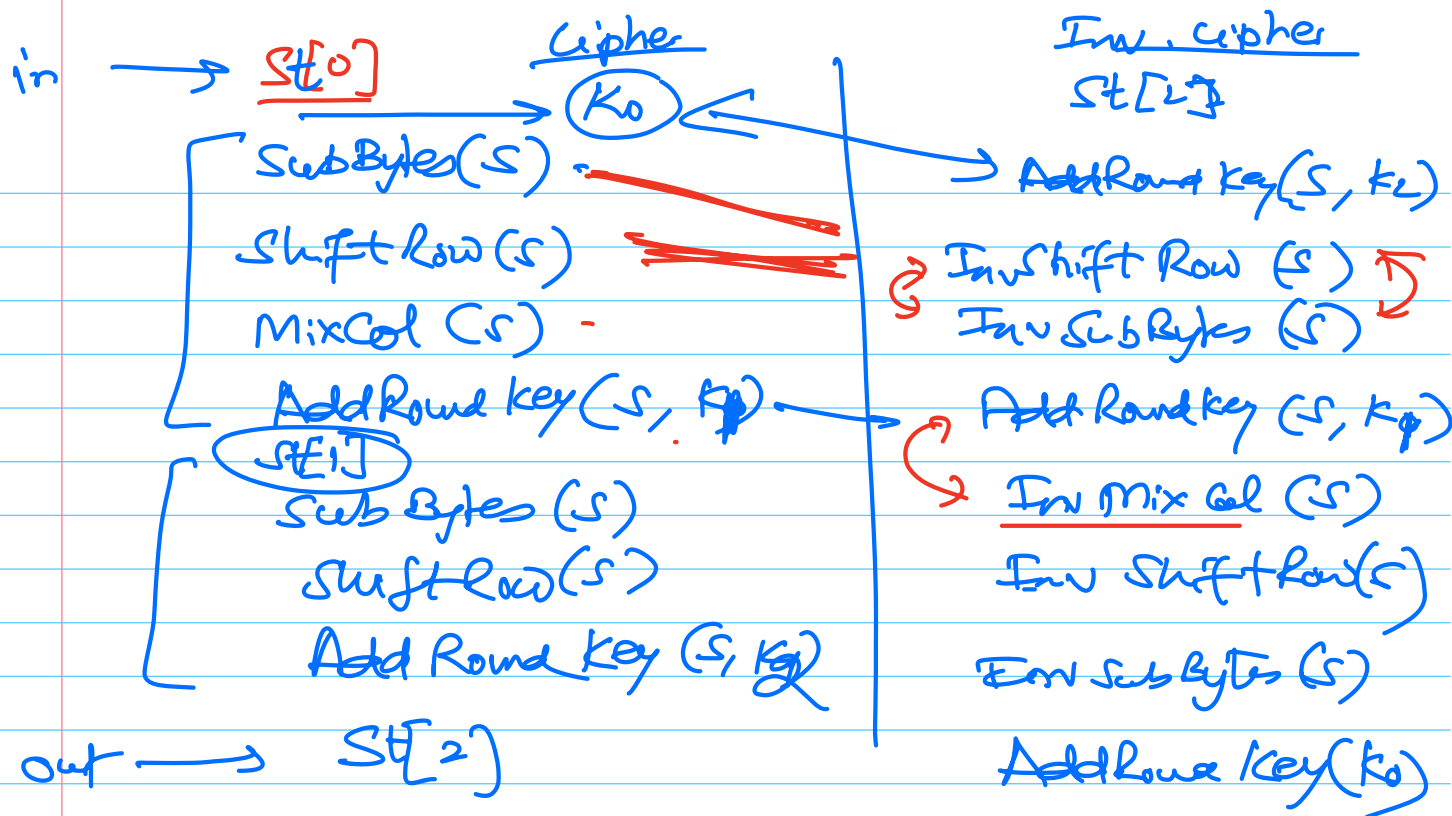 in → St[0]
Cipher
K0
SubBytes(S)
ShiftRow(S)
MixCol(S)
AddRoundKey(S,
St[1]
SubBytes(S)
ShiftRow(S)
AddRoundKey(S,
out → St[2]
Inv. Cipher
St[2]
AddRoundKey(S, K2)
InvShiftRow(S)
InvSubBytes(S)
AddRoundKey(S,
InvMixCol(S)
InvShiftRow(S)
InvSubBytes(S)
AddRoundKey(K0)